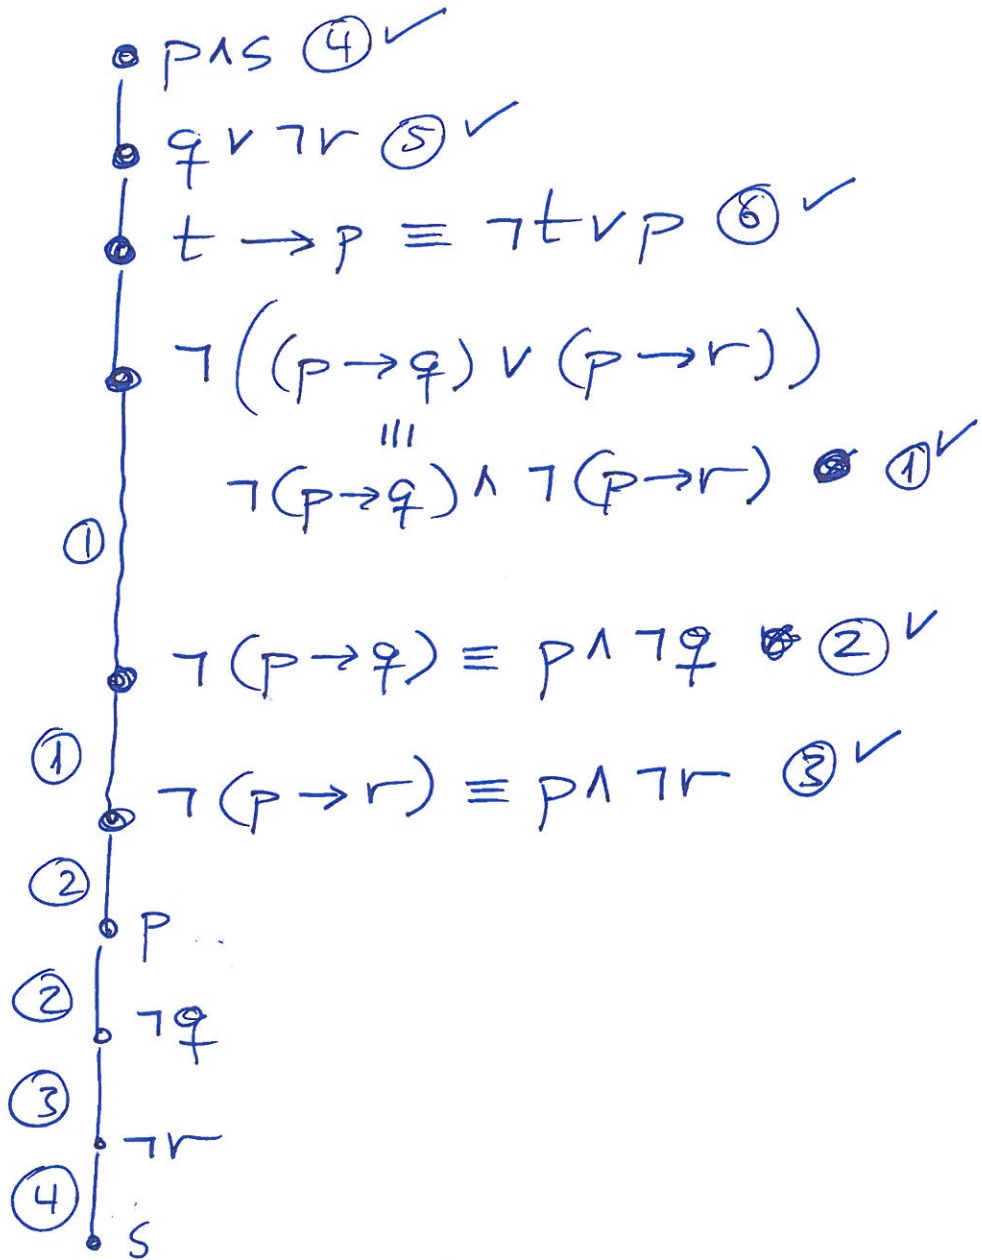 p∧s ④ ✓
q ∨ ¬r ⑤ ✓
t → p ≡ ¬t∨p ⑥ ✓
¬((p→q) ∨ (p→r))
≡
¬(p→q) ∧ ¬(p→r) ① ✓
①
¬(p→q) ≡ p∧¬q ② ✓
①
¬(p→r) ≡ p∧¬r ③ ✓
②
p
②
¬q
③
¬r
④
s